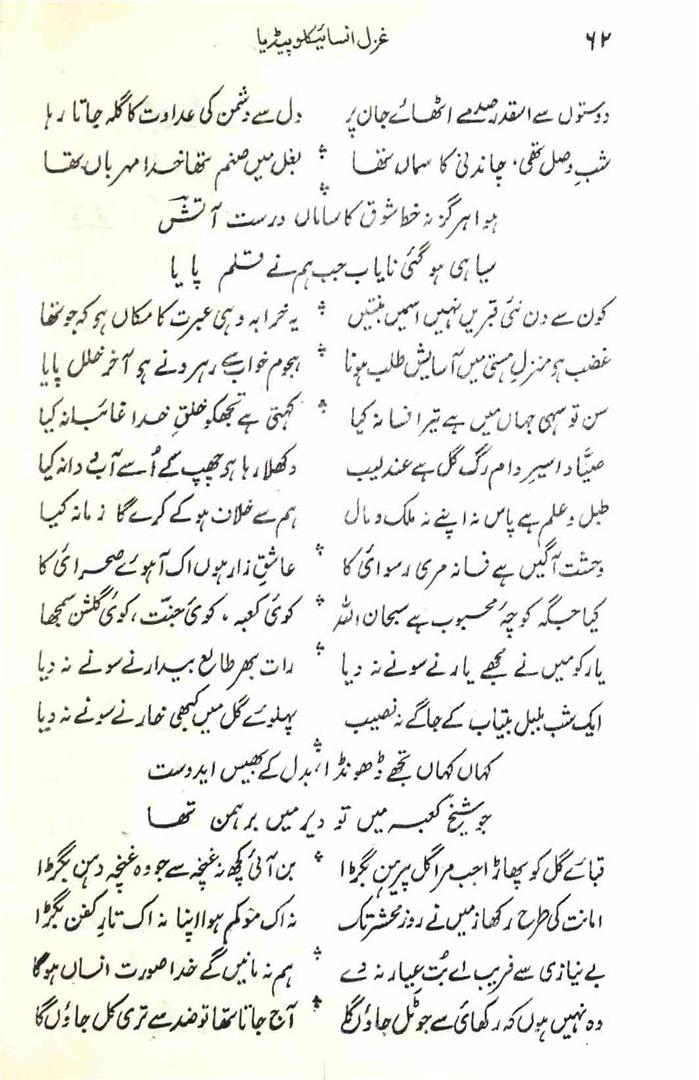 ۶۲ غزل انسائیکلوپیڈیا
دوستوں سے اسقدر صدمے اٹھائے جان پر دل سے دشمن کی عداوت کا گلہ جاتا رہا
شبِ وصل تھی، چاندنی کا سماں تھا بغل میں صنم تھا خدا مہرباں تھا
ہوا ہرگز نہ خط شوق کا ساماں درست آتش
سیاہی ہو گئی نایاب جب ہم نے قلم پایا
کون سے دن نئی قبریں نہیں اسمیں بنتیں یہ خرابہ وہی عبرت کا مکاں ہو کہ جو تھا
غضب ہو منزلِ ہستی میں آسایش طلب ہونا ہجوم خواب سے رہرو نے ہو آخر خلل پایا
سن تو سہی جہاں میں ہے تیرا فسانہ کیا کہتی ہے تجھکو خلقِ خدا غائبانہ کیا
صیّاد اسیرِ دام رگ گل ہے عندلیب دکھلا رہا ہو چھپ کے اُسے آب و دانہ کیا
طبل و علم ہے پاس نہ اپنے نہ ملک و مال ہم سے خلاف ہو کے کرے گا زمانہ کیا
وحشت آگیں ہے فسانہ مری رسوائی کا عاشقِ زار ہوں اک آہوئے صحرائی کا
کیا جگہ کوچۂ محبوب ہے سبحان اللہ کوئی کعبہ، کوئی جنّت، کوئی گلشن سمجھا
یار کو میں نے مجھے یار نے سونے نہ دیا رات بھر طالعِ بیدار نے سونے نہ دیا
ایک شب بلبل بیتاب کے جاگے نہ نصیب پہلوئے گل میں کبھی خار نے سونے نہ دیا
کہاں کہاں تجھے ڈھونڈا، بدل کے بھیس ایدوست
جو شیخ کعبہ میں تو دیر میں برہمن تھا
قبائے گل کو پھاڑا جب مرا گل پیرہن بگڑا بن آئی کچھ نہ غنچہ سے جو وہ غنچہ دہن بگڑا
امانت کی طرح رکھا زمیں نے روز محشر تک نہ اک مو کم ہوا اپنا نہ اک تارِ کفن بگڑا
بے نیازی سے فریب اے بُت عیار نہ دے ہم نہ مانیں گے خدا صورت انساں ہوگا
وہ نہیں ہوں کہ رکھائی سے جو ٹل جاؤں گا آج جاتا تھا تو ضد سے تری کل جاؤں گا